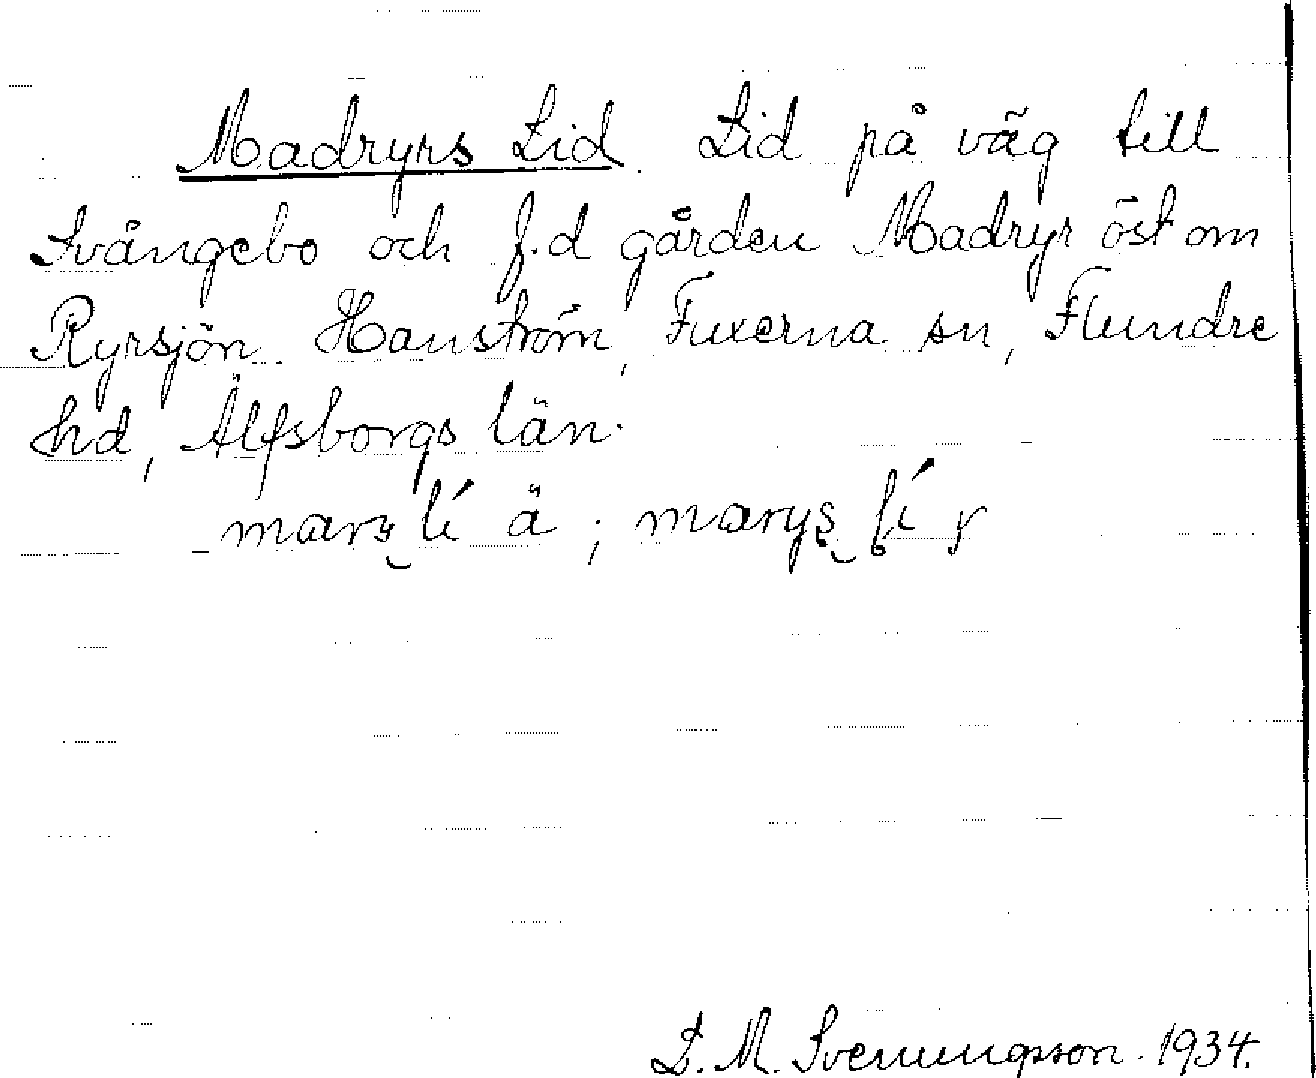 Madryrs Lid. Lid på väg till
Svångebo och f.d gården Madryr öst om
Ryrsjön. Hanström, Fuxerna sn, Flundre
hd, Älfsborgs län.
D. M. Svenungsson. 1934.